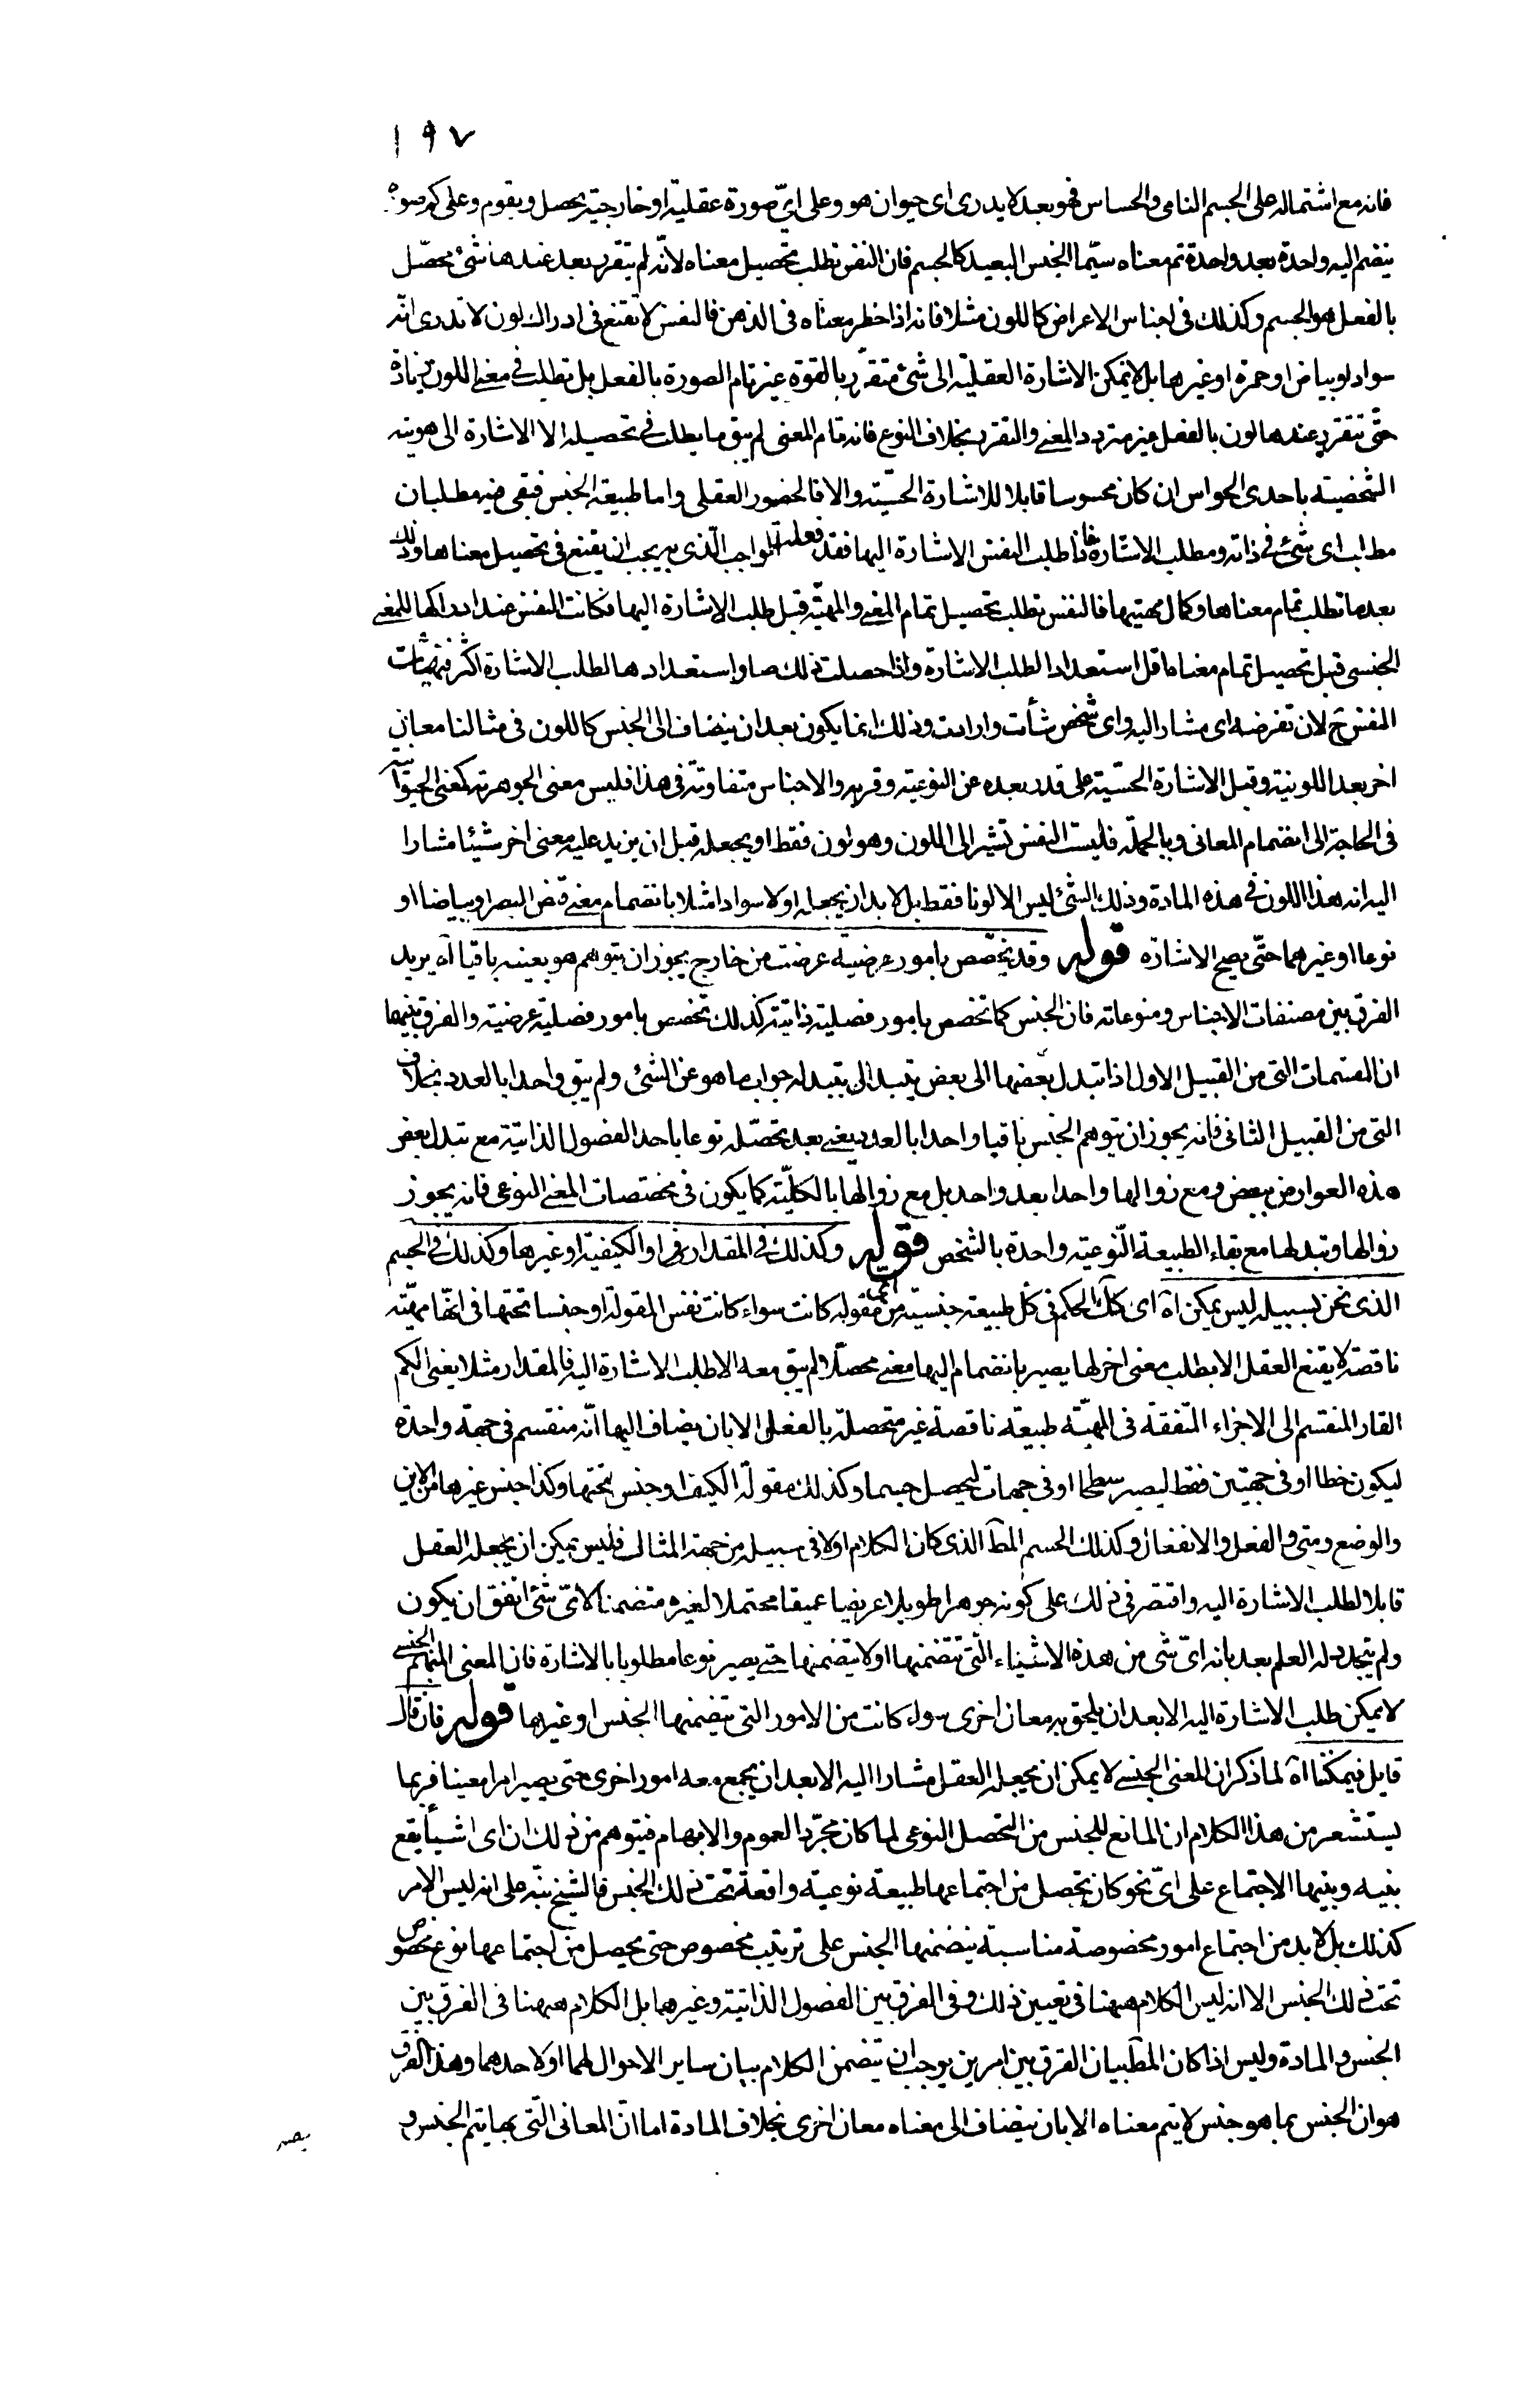 ١٩٧
فانه مع اشتماله على الجسم النامى والحساس فهو بعد لا يدرى اى حيوان هو وعلى اىّ صورة عقلية او خارجية يحصل ويقوم وعلى كم صورة
ينضم اليه واحدة بعد واحدة تم معناه سيّما الجنس البعيد كالجسم فان النفس تطلب تحصيل معناه لانّه لم يتقرر بعد عندها شئ محصّل
بالفعل هو الجسم وكذلك فى اجناس الاعراض كاللون مثلا فانه اذا خطر معناه فى الذهن فالنفس لا تقنع فى ادراك لون لا تدرى انّه
سواد او بياض او حمرة او غيرها بل لا يمكن الاشارة العقليّة الى شئ متقرّر بالقوة غير تام الصورة بالفعل بل تطلب فى معنى اللون زيادة
حتّى تتقرر عندها لون بالفعل غير متردد المعنى والتقرر بخلاف النوع فانه تمام المعنى لم يبق ما يطلب فى تحصيله الا الاشارة الى هويته
الشخصيته باحدى الحواس ان كان محسوسا قابلا للاشارة الحسّيّة والا فالحضور العقلى واما طبيعة الجنس فبقى فيه مطلبان
مطلب اى شئ فى ذاته ومطلب الاشارة فاذا طلب النفس الاشارة اليها فقد فعلت الواجب الّذى به يجب ان يقنع فى تحصيل معناها وذلك
بعد ما تطلب تمام معناها وكمال مهيتها فالنفس تطلب تحصيل تمام المعنى والمهيّة قبل طلب الاشارة اليها فكانت النفس عند ادراكها للمعنى
الجنسى قبل تحصيل تمام معناها قل استعدادا لطلب الاشارة واذا حصلت ذلك صار استعدادها لطلب الاشارة اكثر فتهيّأت
النفس ح لان تفرضه اى مشار اليه واى شخص شأت وارادت وذلك انما يكون بعد ان ينضاف الى الجنس كاللون فى مثالنا معانى
اخر بعد اللونية وقبل الاشارة الحسّيّة على قدر بعده عن النوعية وقربه والاجناس متفاوتة فى هذا فليس معنى الجوهرية كمعنى الحيوانية
فى الحاجة الى انضمام المعانى وبالجملة فليست النفس تشير الى اللون وهو لون فقط او يجعله قبل ان يزيد عليه معنى اخر شيئا مشارا
اليه انه هذا اللون فى هذه المادة وذلك الشئ ليس الا لونا فقط بل لا بد ان يجعله اولا سوادا مثلا بانضمام معنى قبض البصر او بياضا او
نوعا او غيرهما حتّى يصح الاشارة قوله وقد يخصّص بامور عرضية عرضت من خارج يجوز ان يتوهم هو بعينه باقيا اه يريد
الفرق بين مصنفات الاجناس ومنوعاته فان الجنس كما تخصص بامور فصلية ذاتية كذلك تخصص بامور فصلية عرضية والفرق بينهما
ان المقسمات التى من القبيل الاول اذا تبدل بعضها الى بعض يتبدل الى بتبدله جواب ما هو عن الشئ ولم يبق واحدا بالعدد بخلاف
التى من القبيل الثانى فانه يجوز ان يتوهم الجنس باقيا واحدا بالعدد يعنى بعد تحصّله نوعا باحد الفصول الذاتيّة مع تبدل بعض
هذه العوارض ببعض ومع زوالها واحدا بعد واحد بل مع زوالها بالكليّة كما يكون فى مختصات المعنى النوعى فانه يجوز
زوالها وتبدلها مع بقاء الطبيعة النّوعية واحدة بالشخص قوله وكذلك فى المقدار وفى او الكيفية او غيرها وكذلك فى الجسم
الذى نحن بسبيله ليس يمكن اه اى كك الحكم فى كل طبيعة جنسيّة من اى مقوله كانت سواء كانت نفس المقولة او جنسا تحتها فى انّها مهيّة
ناقصة لا يقنع العقل الا بطلب معنى اخر لها يصير بانضمام اليها معنى محصّلا لم يبق معه الا طلب الاشارة اليه فالمقدار مثلا يعنى الكم
القار المنقسم الى الاجزاء المتّفقة فى المهيّة طبيعة ناقصة غير متحصلة بالفعل الا بان يضاف اليها انّه منقسم فى جهة واحدة
ليكون خطا او فى جهتين فقط ليصير سطحا او فى جهات ليحصل جسما وكذلك مقولة الكيف او جنس تحتها وكذا جنس غيرها من الاين
والوضع ومتى والفعل والانفعال وكذلك الجسم المط الذى كان الكلام اولا فى سبيله من جهة المثال فليس يمكن ان يجعله العقل
قابلا لطلب الاشارة اليه واقتصر فى ذلك على كونه جوهرا طويلا عريضا عميقا محتملا لغيره متضمنا لاىّ شئ اتفق ان يكون
ولم يتجدد له العلم بعد بانه اىّ شى من هذه الاشياء الّتى تتضمنها او لا يتضمنها حتى يصير نوعا مطلوبا بالاشارة فان المعنى المبهم الجنسى
لا يمكن طلب الاشارة اليه الا بعد ان يلحق به معان اخرى سواء كانت من الامور التى يتضمنها الجنس او غيرها قوله فان قال
قايل فيمكننا اه لما ذكر ان المعنى الجنسى لا يمكن ان يجعله العقل مشارا اليه الا بعد ان يجمع معه امور اخرى حتى يصير امرا معينا فربما
يستشعر من هذا الكلام ان المانع للجنس من التحصل النوعى لما كان مجرّد العموم والابهام فيتوهم من ذلك ان اى اشياء يقع
بينه وبينها الاجتماع على اىّ نحو كان يحصل من اجتماعها طبيعة نوعية واقعة تحت ذلك الجنس فالشيخ نبّه على انه ليس الامر
كذلك بل لا بد من اجتماع امور مخصوصة مناسبة يتضمنها الجنس على ترتيب مخصوص حتى يحصل من اجتماعها نوع مخصوص
تحت ذلك الجنس الا انه ليس الكلام ههنا فى تعيين ذلك وفى الفرق بين الفصول الذاتية وغيرها بل الكلام ههنا فى الفرق بين
الجنس والمادة وليس اذا كان المط بيان الفرق بين امرين يوجب ان يتضمن الكلام بيان ساير الاحوال لهما او لاحدهما وهذا الفرق
هو ان الجنس بما هو جنس لا يتم معناه الا بان ينضاف الى معناه معان اخرى بخلاف المادة اما انّ المعانى الّتى بها يتم الجنس و